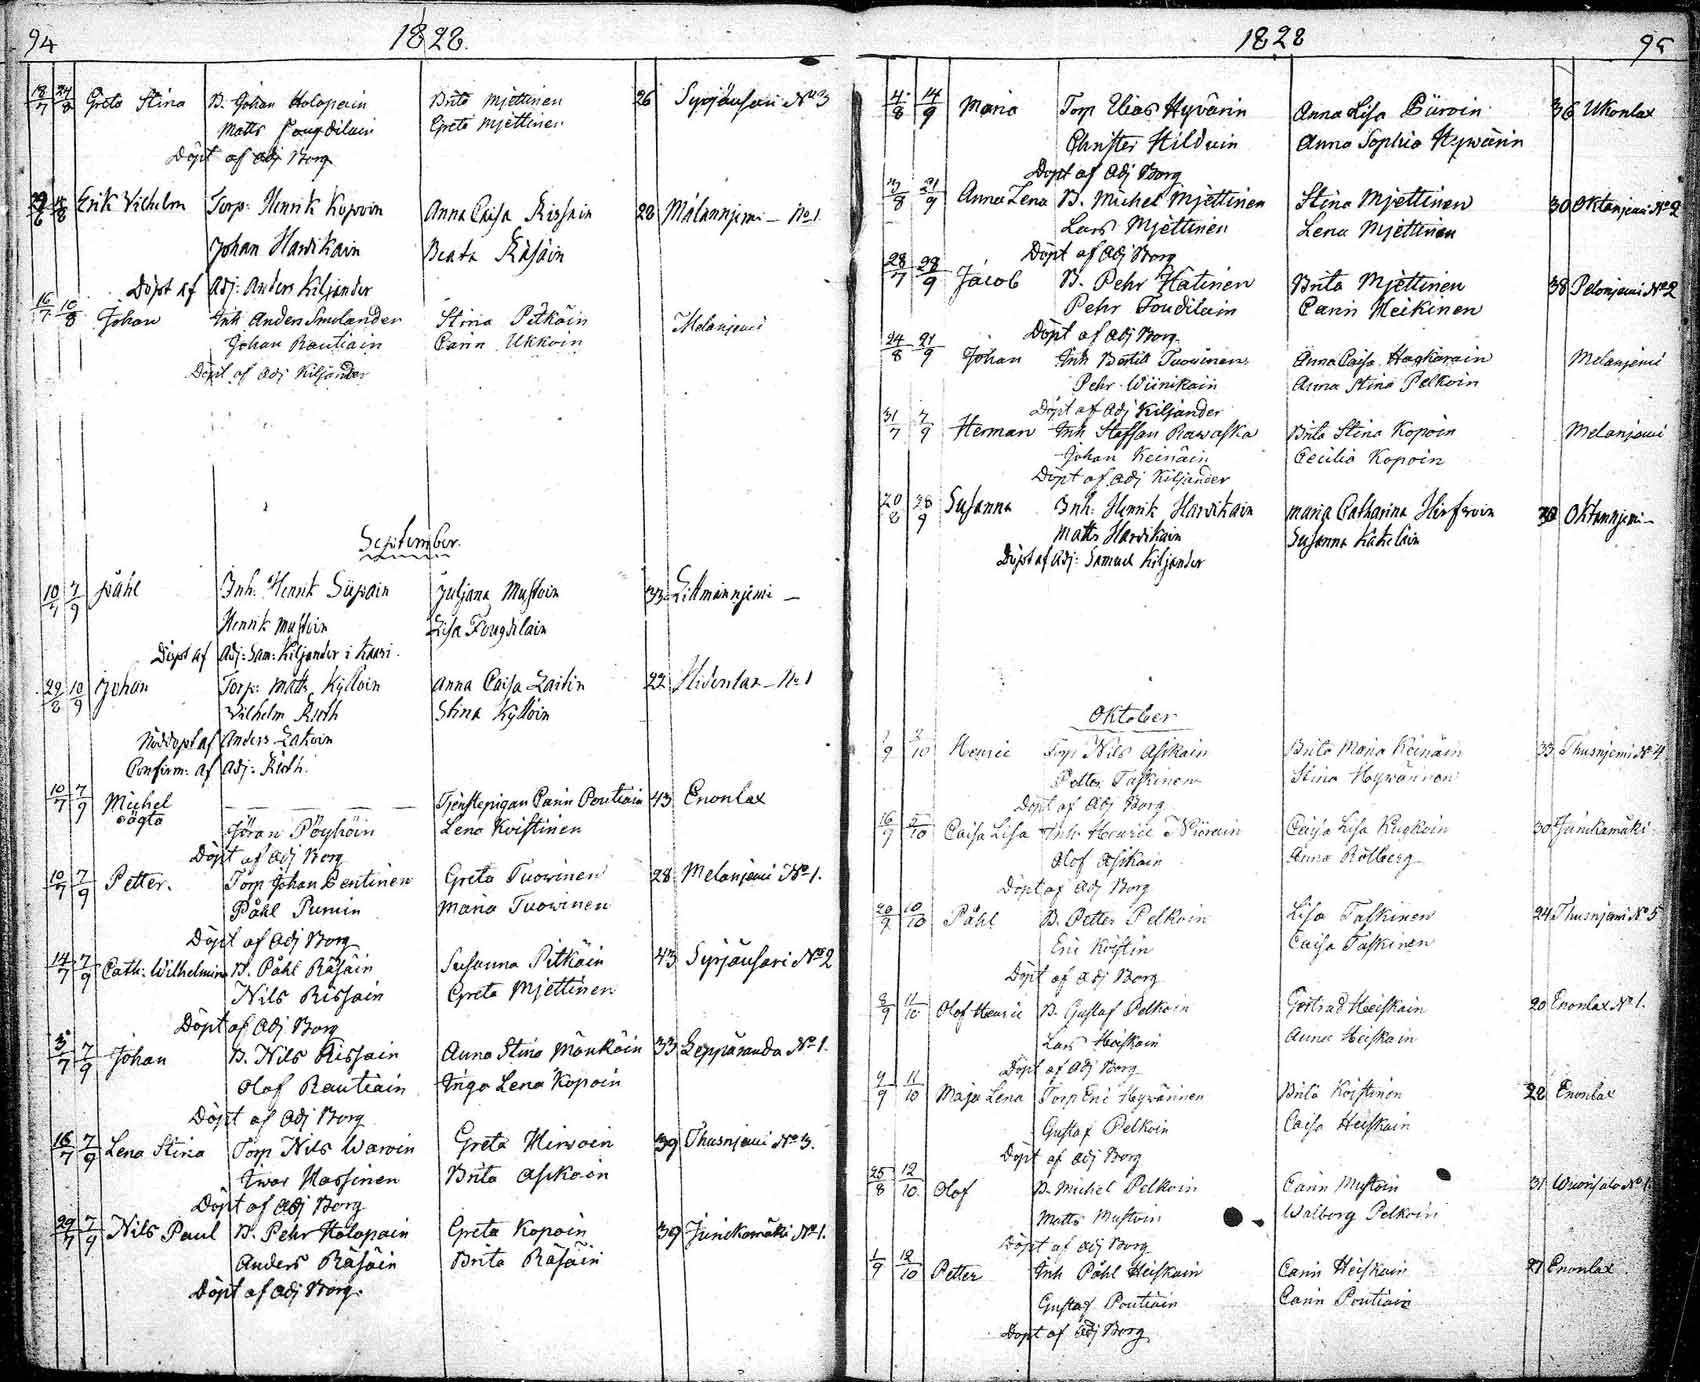 94 1828.
18/7 24/8 Greta Stina B. Johan Holopain Brita Mjettinen 26 Syrjänsari No 3
Matts Fougdilain Greta Mjettinen
Döpt af Adj Borg
Erik Vilhelm Torp: Henrik Kopoin Anna Caisa Rissain 28 Malannjemi – No 1
Johan Harikain Beata Räsäin
Döpt af Adj: Anders Kiljander
16/7 10/8 Johan Inh Anders Smolander Stina Pitkäin Melanjemi
Johan Rautiain Carin Ukkoin
Döpt af Adj Kiljander
September.
10/7 7/9 Påhl Inh: Henrik Siipain Juljana Mustoin 33 Littmannjemi –
Henrik Mustoin Lisa Fougdilain
Döpt af Adj: Sam: Kiljander i Kaavi.
29/8 10/9 Johan Torp: Matts Kylloin Anna Caisa Laitin 22 Hidenlax – No 1
Vilhelm Roth Stina Kylloin
Nöddöpt af Anders Lakoin
Confirm: af Adj: Roth.
10/7 7/9 Michel oägta — — — Tjenstepigan Carin Poutiain 43 Enonlax
Jöran Pöyhöin Lena Koistinen
Döpt af Adj Borg
10/7 7/9 Petter. Torp Johan Pentinen Greta Tuowinen 28 Melanjemi No 1.
Påhl Purnin Maria Tuowinen
Döpt af Adj Borg
14/7 7/9 Cath: Wilhelmina B. Påhl Räsäin Susanna Pitkäin 43 Syrjänsari No 2
Nils Rissain Greta Mjettinen
Döpt af Adj Borg
3/7 7/9 Johan B. Nils Rissain Anna Stina Mönkäin 33 Leppäranda No 1.
Olof Rautiain Inga Lena Kopoin
Döpt af Adj Borg
16/7 7/9 Lena Stina Torp Nils Waroin Greta Hirwoin 39 Thusnjemi No 3.
Iwar Hassinen Brita Askain
Döpt af Adj Borg
29/7 7/9 Nils Paul B. Pehr Holopain Greta Kopoin 39 Junikamäki No 1.
Anders Räsäin Brita Räsäin
Döpt af Adj Borg.
1828 95
4/8 14/9 Maria Torp Elias Hyvärin Anna Lisa Piiroin 36 Ukonlax
Christer Hilduin Anna Sophia Hyvärin
Döpt af Adj Borg
7/8 21/9 Anna Lena B. Michel Mjettinen Stina Mjettinen 30 Oktanjemi No 2
Lars Mjettinen Lena Mjettinen
Döpt af Adj Borg
28/7 28/9 Jacob B. Pehr Hätinen Brita Mjettinen 38 Pelonjemi No 2
Pehr Foudilain Carin Heikinen
Döpt af Adj Borg.
24/8 21/9 Johan Inh Bertil Tuowinen Anna Caisa Hagkarain Melanjemi
Pehr Wiinikain Anna Stina Pelkoin
Döpt af Adj Kiljander
31/7 7/9 Herman Inh Staffan Rawaska Brita Stina Kopoin Melanjemi
Johan Keinäin Cecilia Kopoin
Döpt af Adj Kiljander
20/8 28/9 Susanna Inh: Henrik Harikain Maria Catharina Hirfwoin Oktannjemi –
Matts Harikain Susanna Kakelain
Döpt af Adj: Samuel Kiljander
Oktober
Henric Torp Nils Askain Brita Maria Keinäin 33 Thusnjemi No 4
Petter Taskinen Stina Heyvännen
Döpt af Adj Borg
16/9 5/10 Caisa Lisa Inh Henric Niiräin Caisa Lisa Kugkoin 30 Junikamäki
Olof Askain Anna Rotberg
Döpt af Adj Borg
20/9 10/10 Påhl B. Petter Pelkoin Lisa Taskinen 24 Thusnjemi No 5
Eric Koistin Caisa Taskinen
Döpt af Adj Borg
8/9 11/10 Olof Henric B. Gustaf Pelkoin Gertrud Heiskain 20 Enonlax No 1.
Lars Heiskain Anna Heiskain
Döpt af Adj Borg
9/9 11/10 Maja Lena Torp Eric Heyvännen Brita Koistinen 28 Enonlax
Gustaf Pelkoin Caisa Heiskain
Döpt af Adj Borg
25/8 12/10 Olof B. Michel Pelkoin Carin Mustoin 31 Wuorisalo No 1.
Matts Mustoin Walborg Pelkoin
Döpt af Adj Borg
1/9 12/10 Petter Inh Påhl Heiskain Carin Heiskain 27 Enonlax
Gustaf Poutiain Carin Poutiain
Döpt af Adj Borg